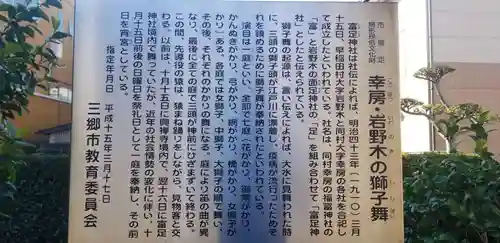 市指定
無形民俗文化財
幸房・岩野木の獅子舞
富足神社は社伝によれば、明治四十三年(一九一〇)三月
十五日、早稲田村大字岩野木と同村大字幸房の各社を合祀し
て成立したといわれている。社名は、同村幸房の福富神社の
「富」と岩野木の面足神社の「足」を組み合わせて「富足神
社」としたと伝えられている。
獅子舞の起源は、言い伝えによれば、大水に見舞われた時
に、三頭の獅子頭が江戸川に漂着し、疫病が流行ったためそ
れを鎮めるために獅子舞が奉納されたといわれている。
演目は一庭といい、全部で七庭(花がかり、御幣がかり、
かんぬきがかり、弓がかり、綱がかり、橋がかり、女獅子が
かり)ある。各庭では女獅子、中獅子、大獅子の順で舞い、
その後、それぞれのかかりの舞になる。庭により笛の曲が異
なり、最後に全ての庭で三頭が神前にひざまずいて終わる。
この間、先導役の猿は、猿まね踊りをしながら、見物客と交
わる。以前は、十月十五日に香取神社境内で、翌十六日に富足
神社境内で舞っていたが、近年の社会情勢の変化に伴い、十
月十五日前後の日曜日を祭礼日として一庭を奉納し、その前
日を宵宮としている。
指定年月日 平成十五年三月十七日
三郷市教育委員会